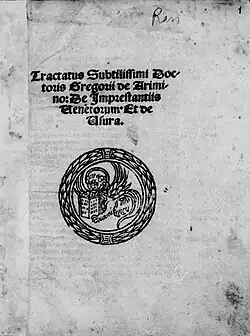 1
Tractatus Subtilissimi Doc-
toris Gregorii de Arimi-
no: De Imprestantiis
Venetorum: Et de
Usura.